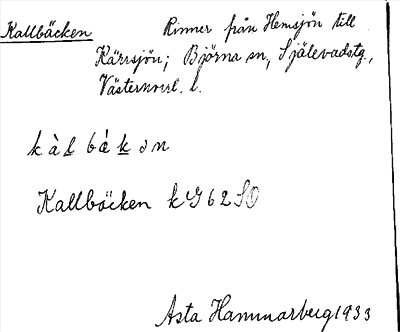 Kallbäcken Rinner från Hemsjön till
Kärrsjön; Björna sn, Själevadstg.,
Västernorrl. l.
kàḻ bá́ḵ ən
Kallbäcken k G 62 SO
Asta Hammarberg 1933